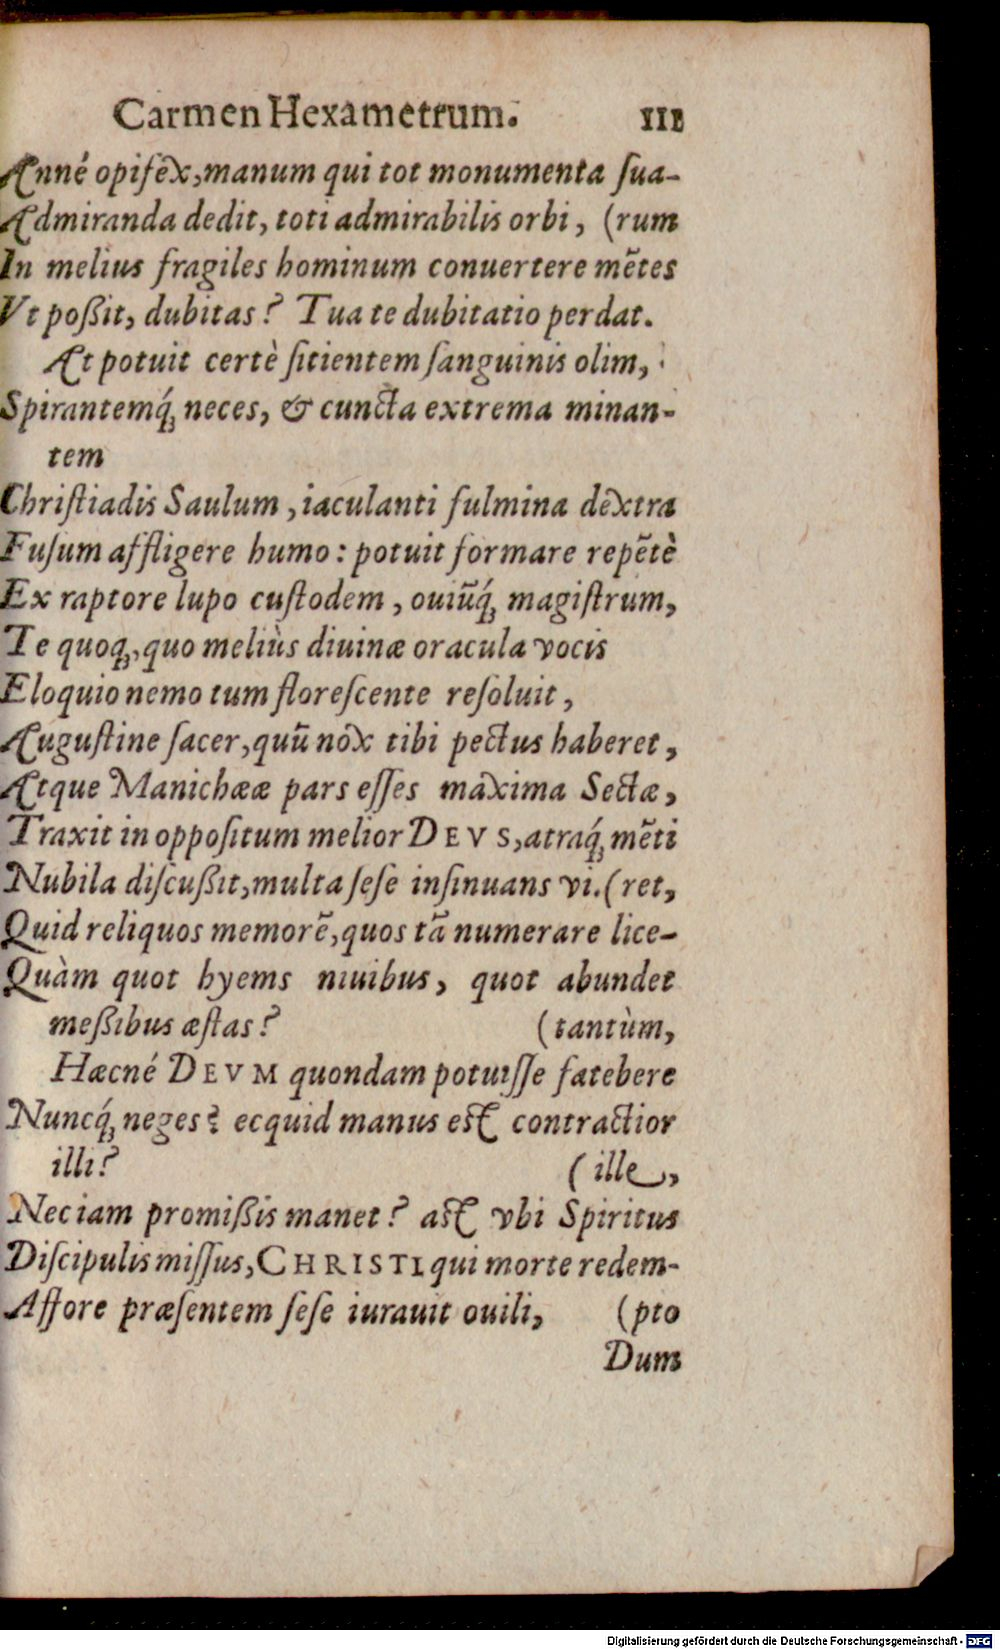 Carmen Hexametrum. III
Anné opifex, manum qui tot monumenta ſua-
Admiranda dedit, toti admirabilis orbi, (rum
In melius fragiles hominum conuertere mẽtes
Vt poßit, dubitas? Tua te dubitatio perdat.
At potuit certè ſitientem ſanguinis olim,
Spirantemq́; neces, & cuncta extrema minan-
tem
Chriſtiadis Saulum, iaculanti fulmina dextra
Fuſum affligere humo: potuit formare repẽtè
Ex raptore lupo cuſtodem, ouiũq́; magiſtrum,
Te quoq;, quo meliùs diuinæ oracula vocis
Eloquio nemo tum floreſcente reſoluit,
Auguſtine ſacer, quũ nox tibi pectus haberet,
Atque Manichææ pars eſſes maxima Sectæ,
Traxit in oppoſitum melior DEVS, atraq́; mẽti
Nubila diſcußit, multa ſeſe inſinuans vi. (ret,
Quid reliquos memorẽ, quos tã numerare lice-
Quàm quot hyems niuibus, quot abundet
meßibus æſtas? (tantùm,
Hæcné DEVM quondam potuiſſe fatebere
Nuncq́; neges? ecquid manus eſt contractior
illi? (ille,
Nec iam promißis manet? aſt vbi Spiritus
Diſcipulis miſſus, CHRISTI qui morte redem-
Affore præſentem ſeſe iurauit ouili, (pto
Dum
Digitalisierung gefördert durch die Deutsche Forschungsgemeinschaft - DFG